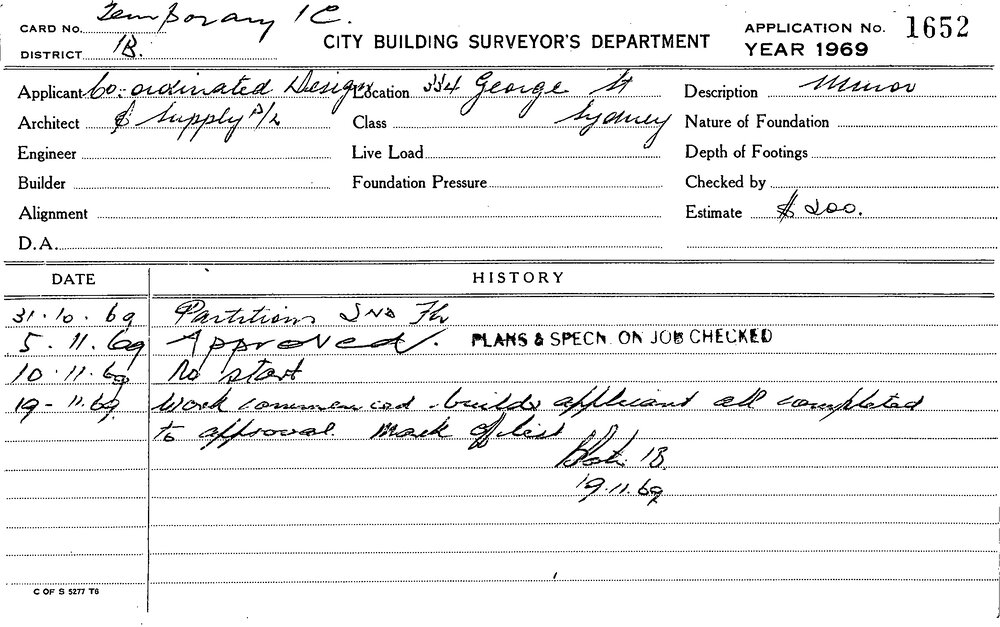 CARD No. Temporary 1C.
DISTRICT 1B.
CITY BUILDING SURVEYOR'S DEPARTMENT
APPLICATION No. 1652
YEAR 1969
Applicant Co-ordinated Design Location 334 George St Description Minor
Architect & Supply P/L Class Sydney Nature of Foundation
Engineer Live Load Depth of Footings
Builder Foundation Pressure Checked by
Alignment Estimate $200.
D.A.
DATE HISTORY
31.10.69 Partitions 2ND Flr
5.11.69 Approved. PLANS & SPECN. ON JOB CHECKED
10.11.69 No start
19-11.69 Work commenced builder applicant all completed
to approval. Mark off list
1B.
19.11.69
C OF S 5277 T6